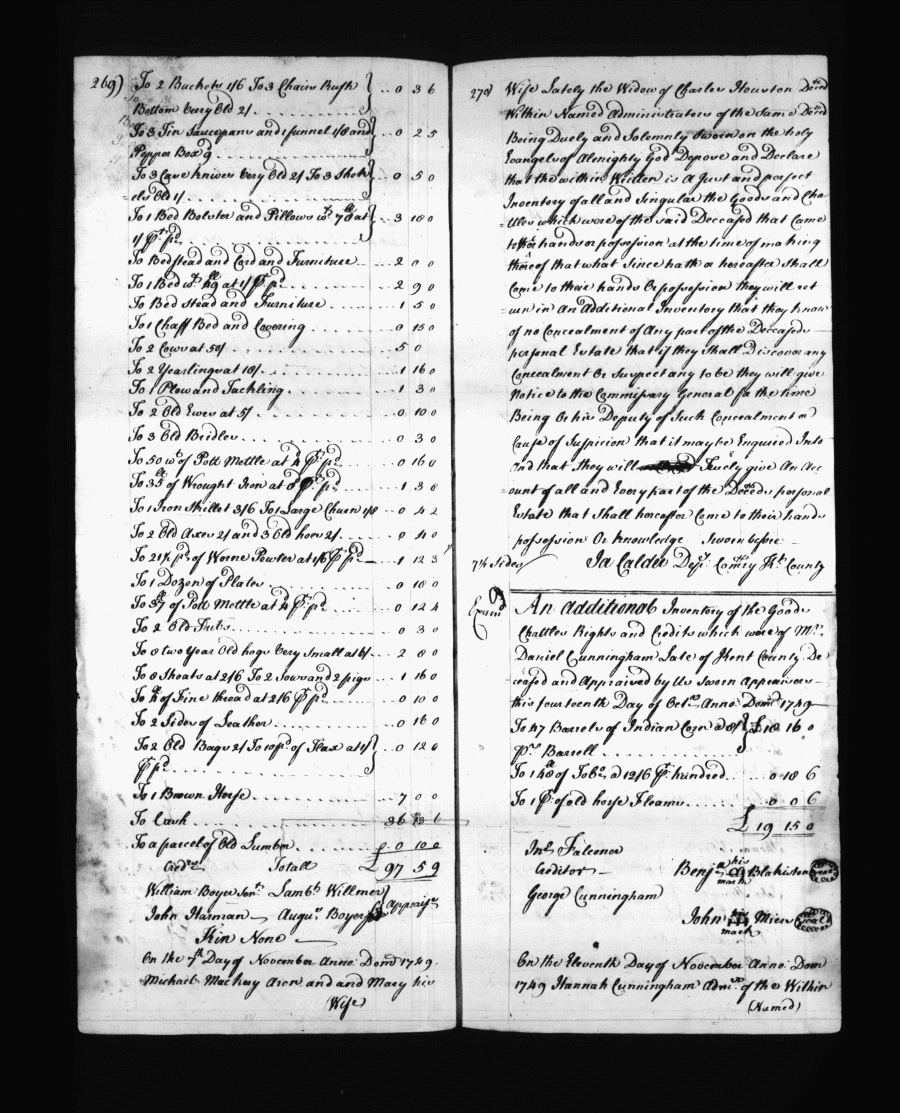 269)
To 2 Buckets 1/6 To 3 Chairs Rush } .. 0 3 6
Bottom Very Old 2/
To 3 Tin Saucepans and 1 funnel 1/8 and } .. 0 2 5
Pepper Box 9
To 3 Case knives Very Old 2/ To 3 Shov } .. 0 5 0
=els Old 1/
To 1 Bed Bolster and Pillows wt. 78 lb at } .. 3 18 0
1/ P. pd
To Bedstead and Cord and Furniture .. 2 0 0
To 1 Bed wt. 49 lb at 1/ P. pd .. 2 9 0
To Bed Stead and Furniture .. 1 5 0
To 1 Chaff Bed and Covering .. 0 15 0
To 2 Cows at 50/ .. 5 0 0
To 2 Yearlings at 18/ .. 1 16 0
To 1 Plow and Tackling .. 1 3 0
To 2 Old Ewes at 5/ .. 0 10 0
To 3 Old Bridles .. 0 3 0
To 50 wt. of Pott Mettle at 4 P. pd .. 0 16 0
To 35 lb of Wrought Iron at 8 P. pd .. 1 3 8
To 1 Iron Skillet 3/6 To 1 Large Churn 1/8 .. 0 4 2
To 2 Old Axes 2/ and 3 Old hoes 2/ .. 0 4 0
To 21½ pd. of Worne Pewter at 1/6 P. pd .. 1 12 3
To 1 Dozen of Plates .. 0 18 0
To 37 lb of Pott Mettle at 4 P. pd .. 0 12 4
To 2 Old Tubs .. 0 3 0
To 8 two Year Old hogs Very Small at 6/ .. 2 8 0
To 8 Shoats at 2/6 To 2 Sows and 2 pigs .. 1 16 0
To 4 lb of Fine thread at 2/6 P. pd .. 0 10 0
To 2 Sides of Leather .. 0 16 0
To 2 Old Bags 2/ To 10 pd. of Flax at 1/ } .. 0 12 0
P. pd
To 1 Brown Horse .. 7 0 0
To Cash .. 36 18 6
To a parcel of Old Lumber .. 0 10 0
Credrs. Totall £ 97 5 9
William Boyer Senr. Lambt. Willmer }
John Harman Augus. Boyer } Appraisrs
Kin None
On the 7th Day of November Anno: Domd 1749.
Michael Mackey Aron and and Mary his
(Wife)
270)
Wife Lately the Widow of Charles Houston Decd
Within Named Administrators of the Same Decd
Being Duely and Solemnly Sworn on the holy
Evangels of Almighty God Depose and Declare
that the within Written is A Just and perfect
Inventory of all and Singular the Goods and Cha
=ttles which were of the said Deceased that Came
to their hands or possession at the time of making
thereof that what Since hath or hereafter Shall
Come to their hands Or possession they will ret
=urn in An Additional Inventory that they know
of no Concealment of Any part of the Deceaseds
personal Estate that if they Shall Discover any
Concealment Or Suspect any to be they will give
Notice to the Commissary General for the time
Being Or his Deputy of Such Concealment or
Cause of Suspicion that it may be Enquired Into
And that they will Truely give An Acc
=ount of all and Every part of the Deceds personal
Estate that Shall hereafter Come to their hands
possession Or knowledge Sworn before
7¼ Sides Ja Calder Dept. Comry Kt. County
Examd
An Additional Inventory of the Goods
Chattles Rights and Credits which were of Mr.
Daniel Cunningham Late of Kent County De
ceased and Appraised by Us Sworn Appraisers
this fourteenth Day of Octr. Anno: Domd 1749
To 47 Barrels of Indian Corn @ 8/ } £18 16 0
Pr. Barrell
To 148 lb of Tobo. @ 12/6 P. hundred .. 0 18 6
To 1 P. of old horse Fleams .. 0 0 6
£ 19 15 0
Jno. Falconer
Creditor Benja his mark Blakiston Seal
George Cunningham
John his mark Miers Seal
On the Eleventh Day of November Anno: Dom
1749 Hannah Cunningham Admx. of the Within
(Named)